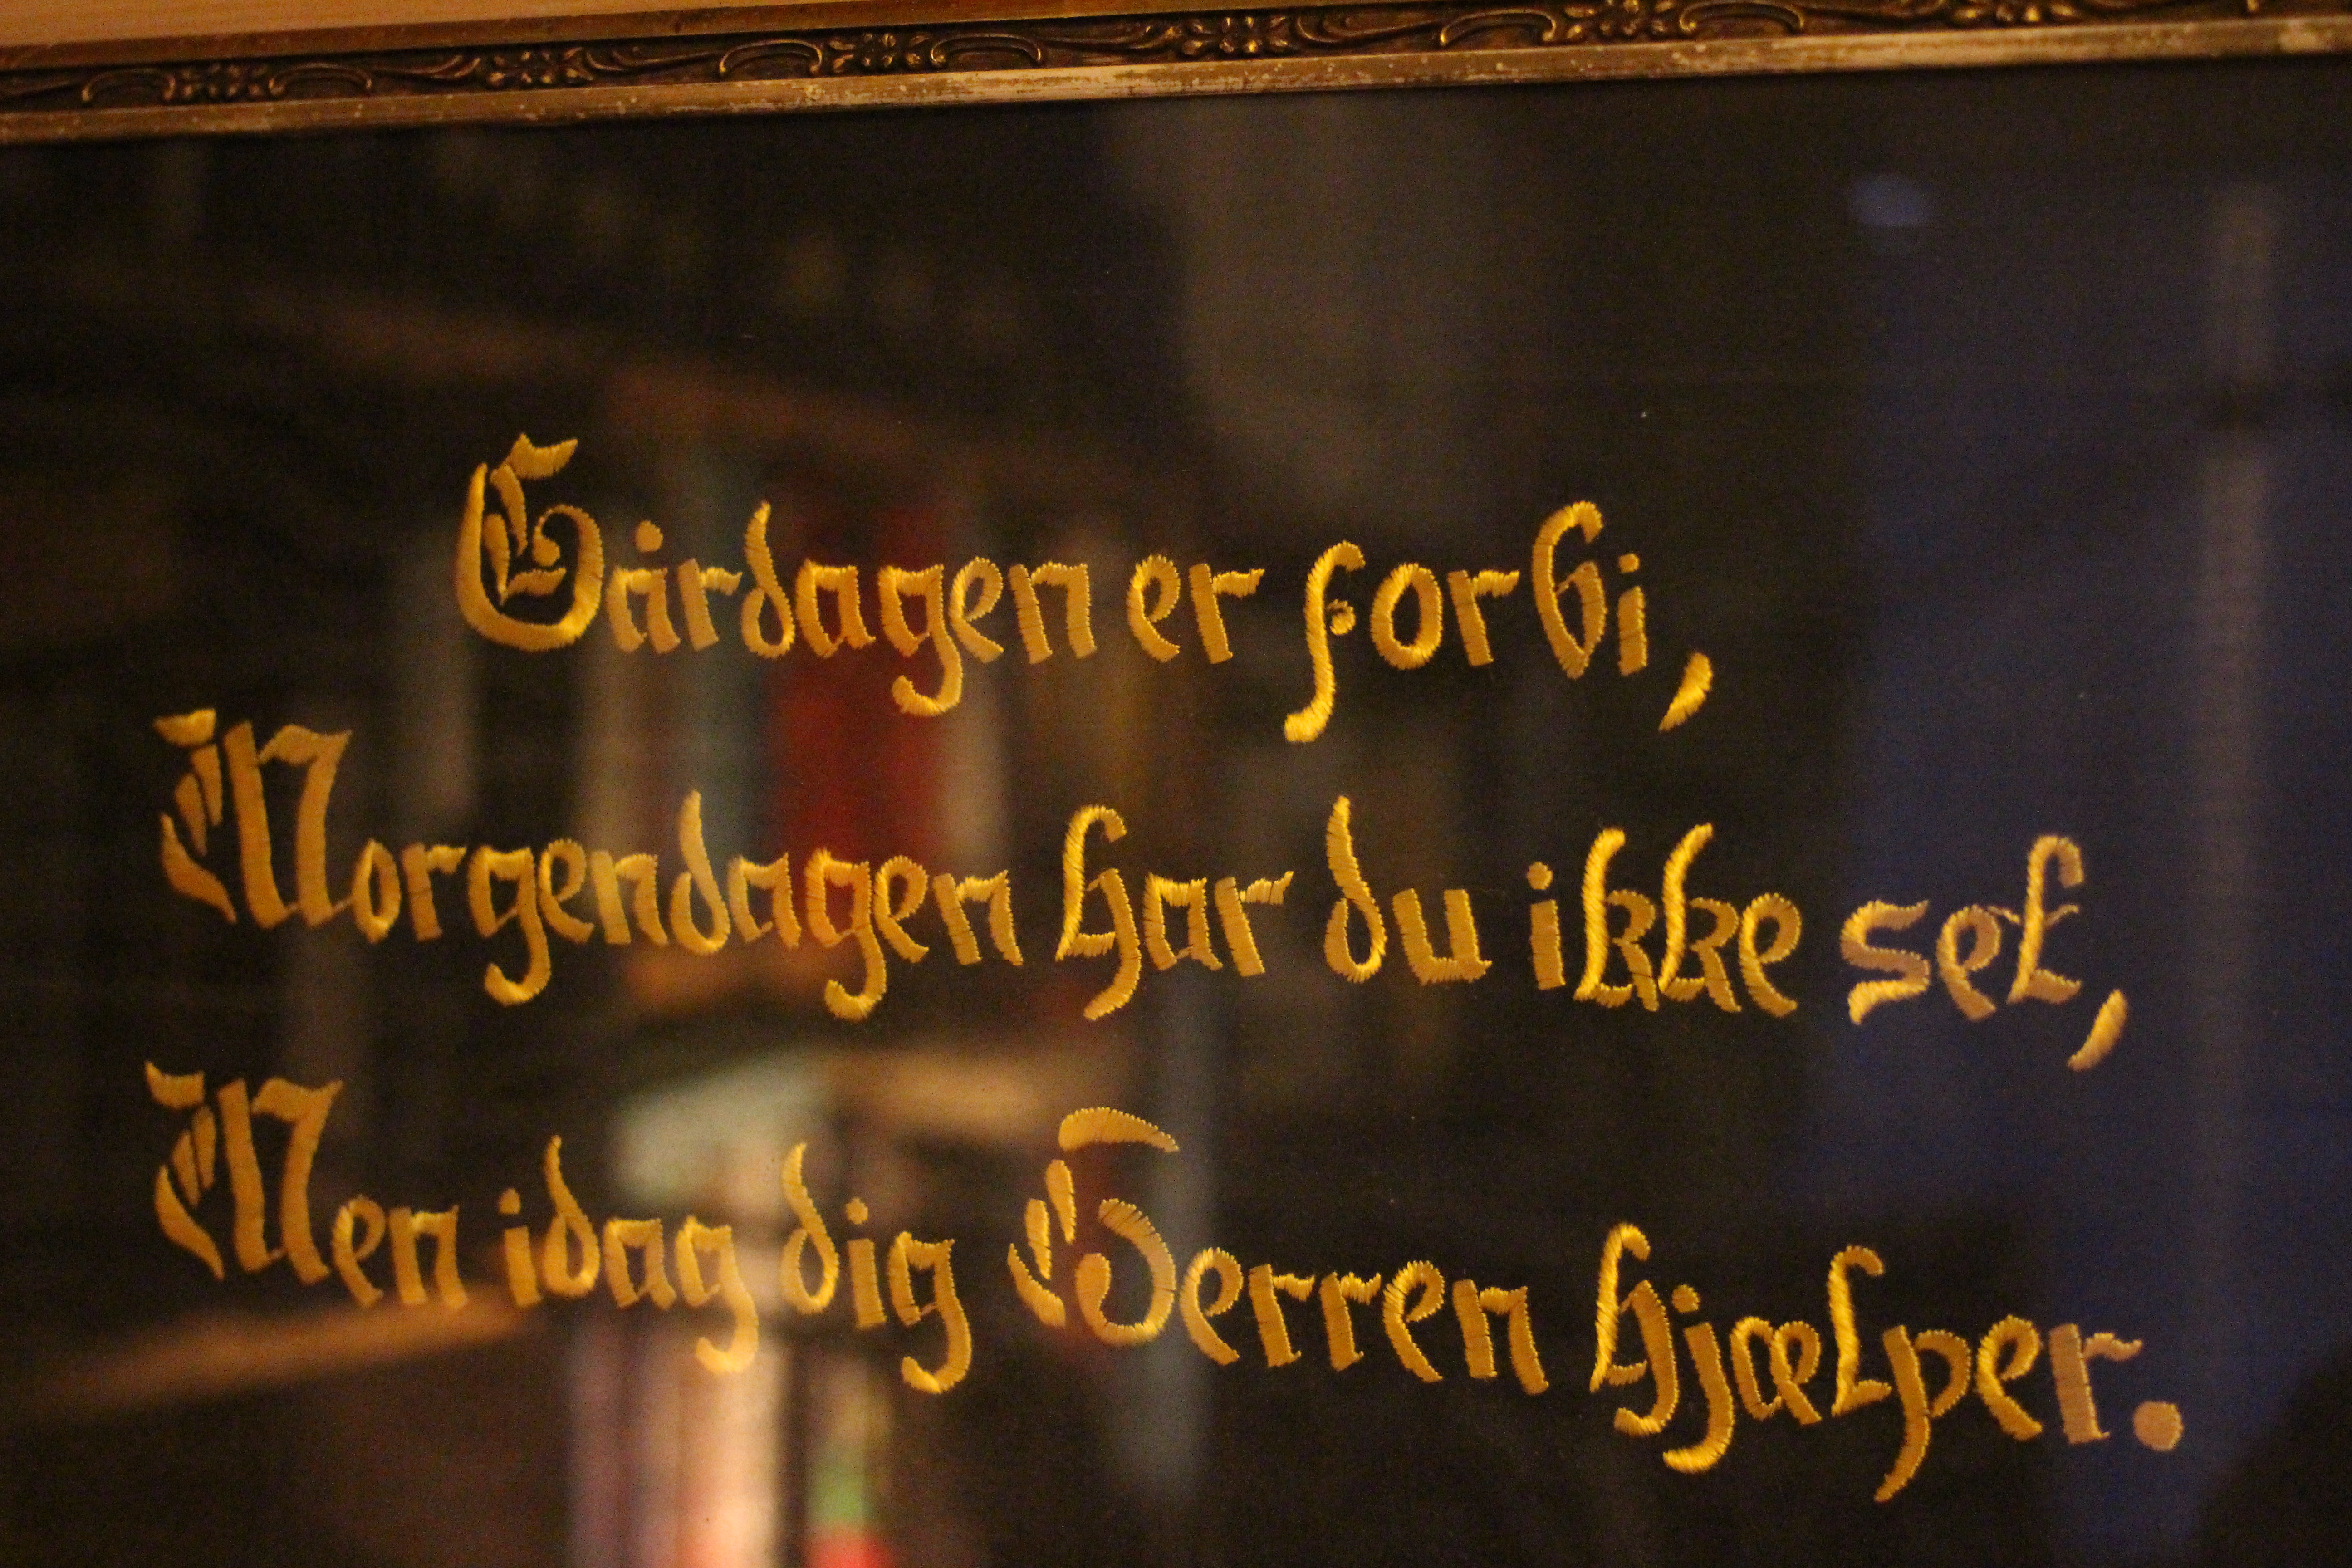 Gårdagen er forbi,
Morgendagen har du ikke set,
Men idag dig Herren hjælper.